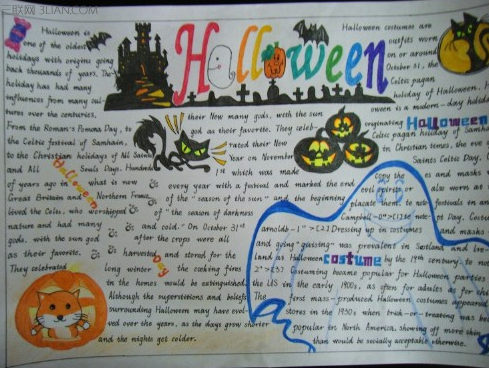 三联网 3LIAN.COM
Halloween
Halloween is
one of the oldest
holidays with origins going
back thousands of years. The
holiday has had many
influences from many cul-
tures over the centuries.
From the Roman's Pomona Day, to
the Celtic festival of Samhain,
to the Christian holidays of All Saints
and All Souls Days. Hundreds
of years ago in what is now
Great Britain and Northern France,
lived the Celts, who worshipped
nature and had many
gods, with the sun god
as their favorite.
They celebrated
Halloween
Day
their Now many gods, with the sun
god as their favorite. They celeb-
rated their New
Year on November
1st which was made
every year with a festival and marked the end
of the "season of the sun" and the beginning
of "the season of darkness
and cold." On October 31st
after the crops were all
harvested and stored for the
long winter the cooking fires
in the homes would be extinguished.
Although the superstitions and beliefs
surrounding Halloween may have evol-
ved over the years, as the days grow shorter
and the nights get colder.
Halloween costumes are
outfits worn
on or around
October 31, the
Celtic pagan
holiday of Halloween. H
oween is a modern-day holi
originating Halloween
Celtic pagan holiday of Samha
in Christian times, the eve
Saints Celtic Day. C
copy the es and masks
evil spirits or also worn at
placate them. to now festivals in an
Campbell
arnolds-1">[2] Dressing up in costumes and masks
and going "guising" was prevalent in Scotland and Ire-
land at Halloween costume by the 19th century to
2">[3] Costuming became popular for Halloween parties
the US in the early 1900s, as often for adults as for chi
The first mass-produced Halloween costumes appeared
stores in the 1930s when trick-or-treating was be
popular in North America, showing off more skin
than would be socially acceptable otherwise.